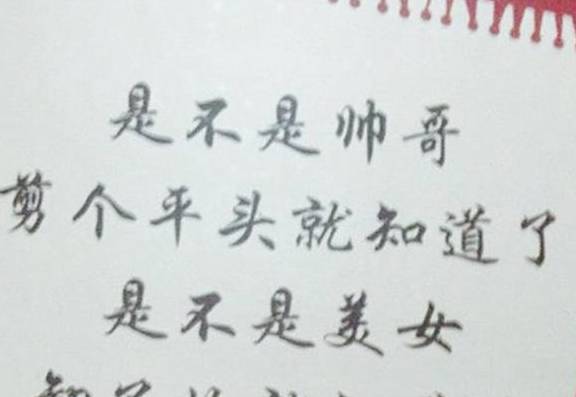 是不是帅哥
剪个平头就知道了
是不是美女